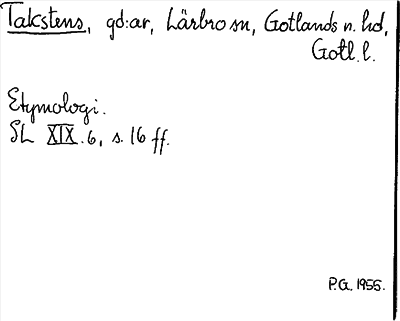 Takstens, gd:ar, Lärbro sn, Gotlands n. hd,
Gotl. l.
Etymologi.
SL XIX.6, s. 16 ff.
P.G. 1955.